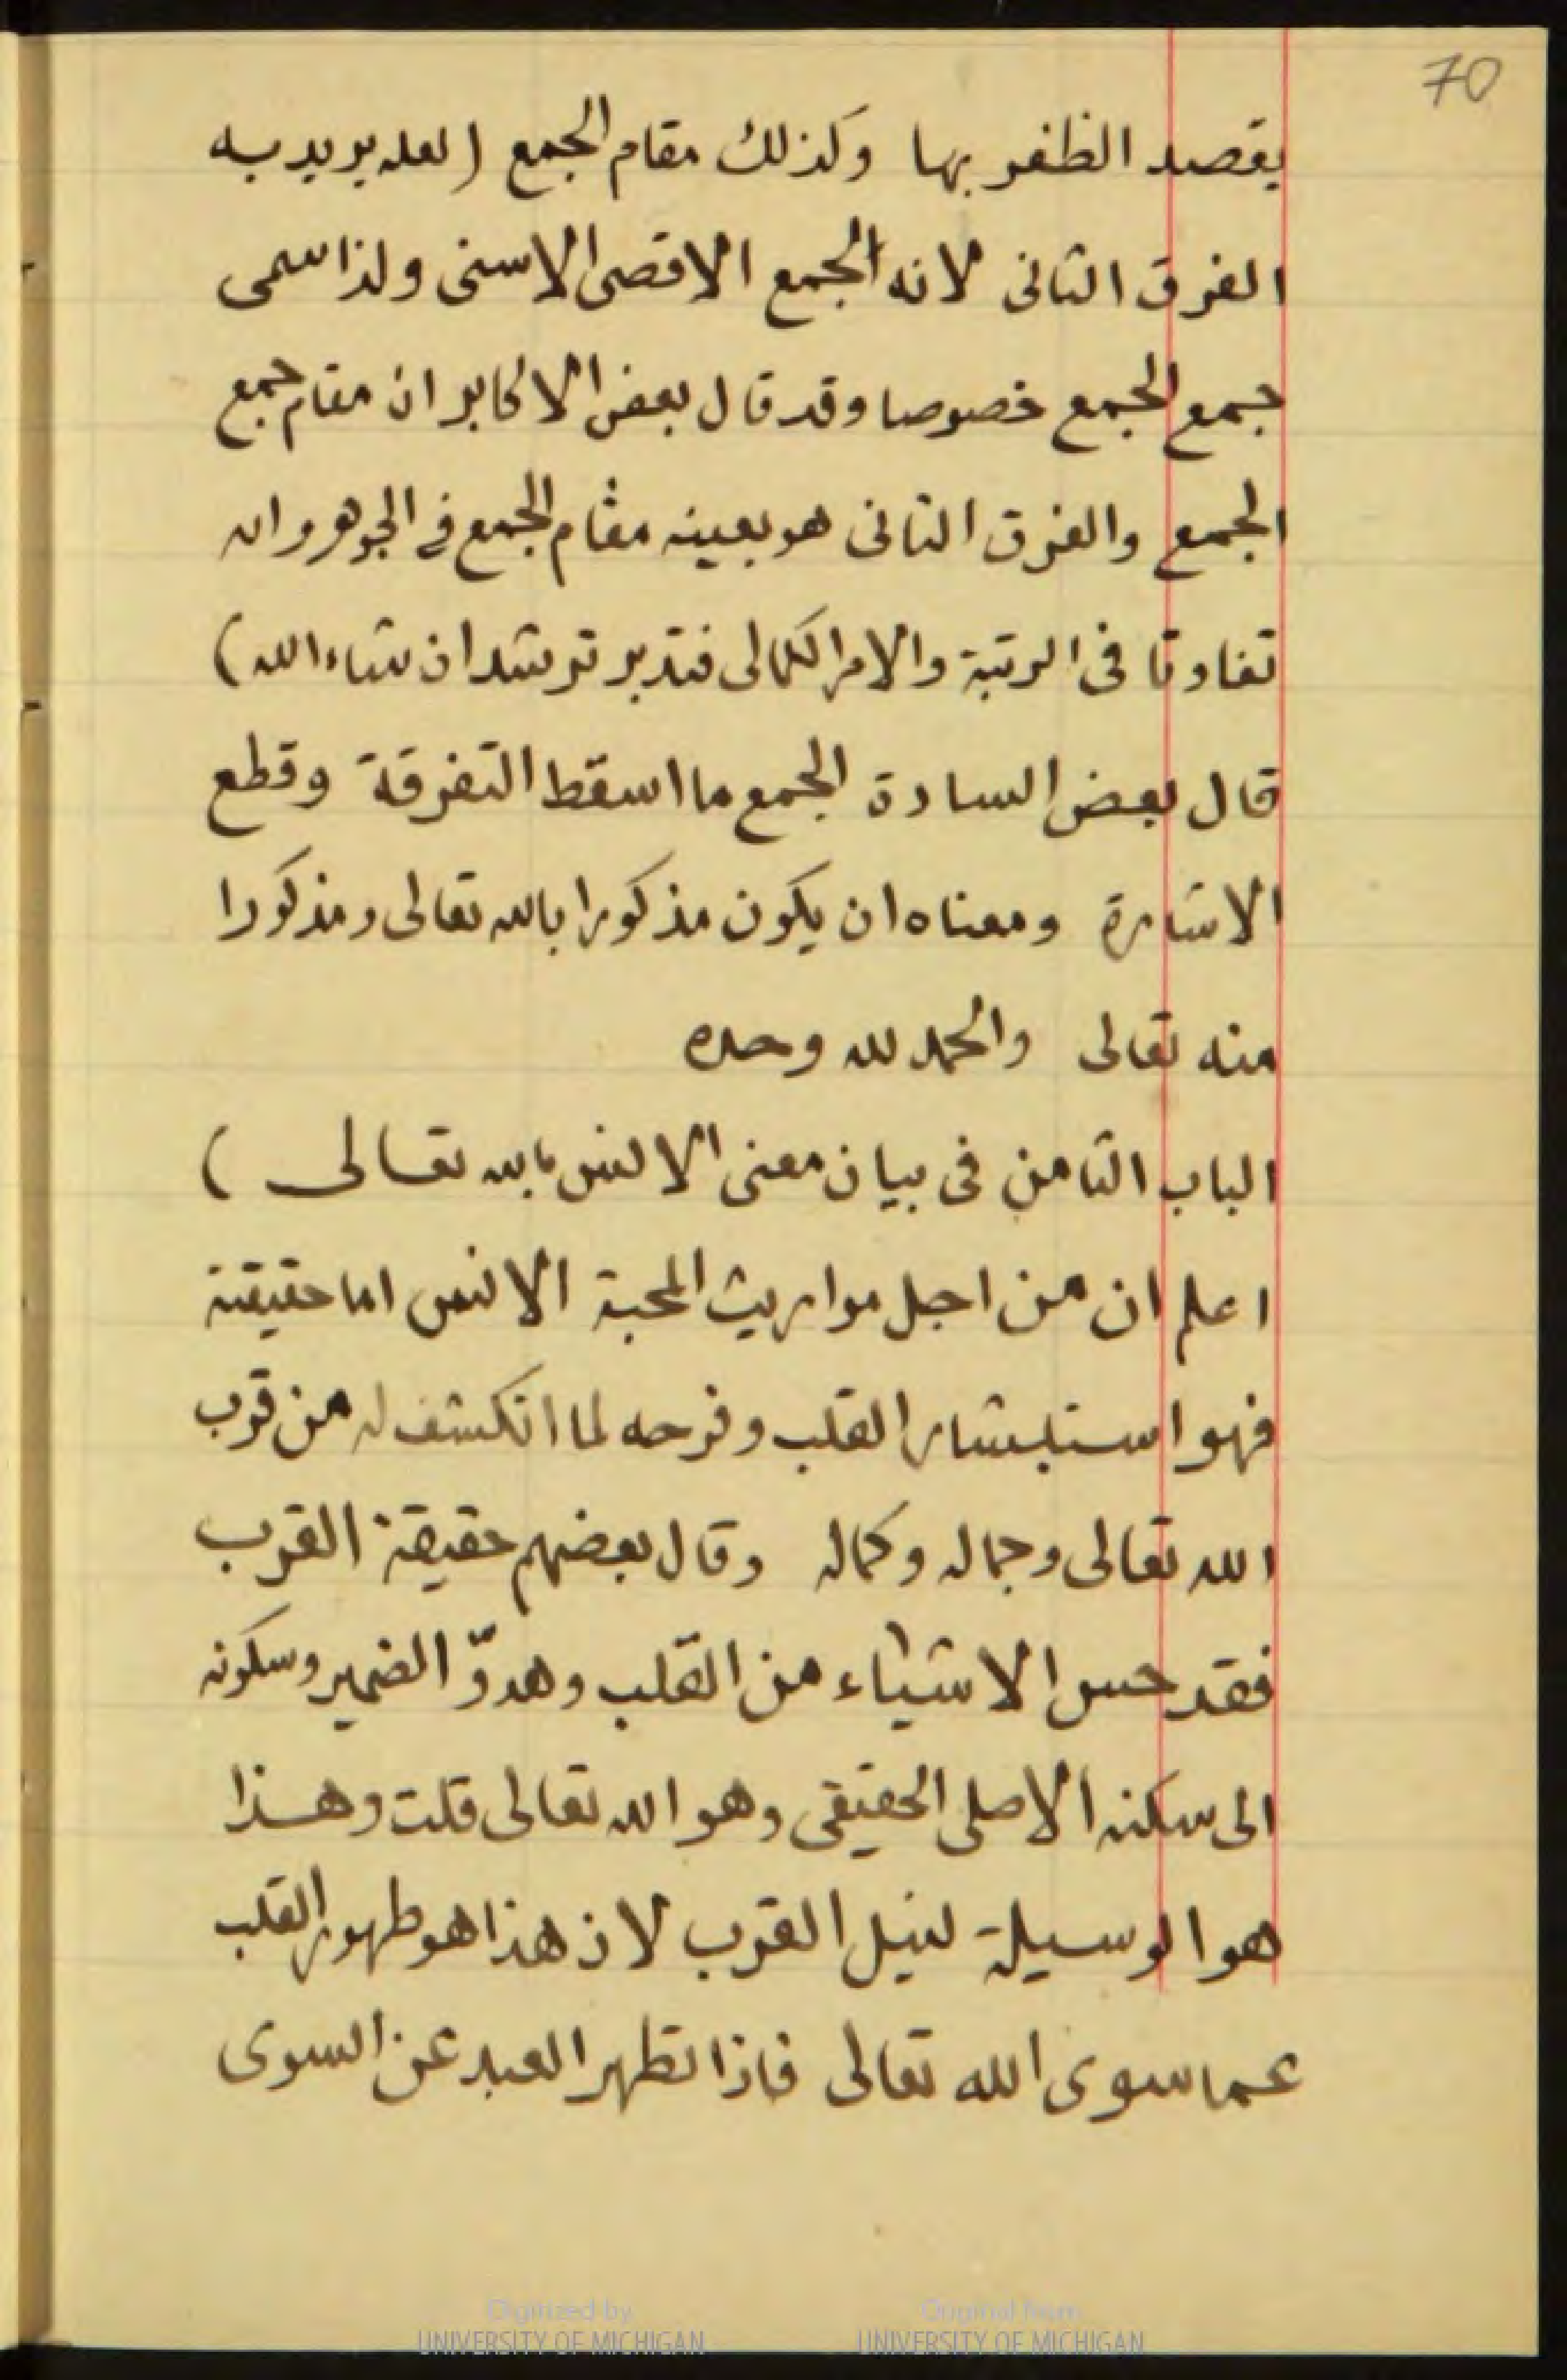 70
يقصد الظفر بها وكذلك مقام الجمع (لعله يريد به
الفرق الثانى لانه الجمع الاقصى الاسنى ولذا سمى
جمع الجمع خصوصا وقد قال بعض الاكابر ان مقام جمع
الجمع والفرق الثانى هو بعينه مقام الجمع فى الجوهر وان
تفاوتا فى الرتبة والامر الكمالى فتدبر ترشد ان شاء الله)
قال بعض السادة الجمع ما اسقط التفرقة وقطع
الاشارة ومعناه ان يكون مذكورا بالله تعالى ومذكورا
منه تعالى والحمد لله وحده
الباب الثامن فى بيان معنى الانس بالله تعالى )
اعلم ان من اجل مواريث المحبة الانس اما حقيقته
فهو استبشار القلب وفرحه لما انكشف له من قرب
الله تعالى وجماله وكماله وقال بعضهم حقيقة القرب
فقد حس الاشياء من القلب وهدوّ الضمير وسكونه
الى سكنه الاصلى الحقيقى وهو الله تعالى قلت وهذا
هو الوسيلة لنيل القرب لان هذا هو طهور القلب
عما سوى الله تعالى فاذا تطهر العبد عن السوى
Digitized by
UNIVERSITY OF MICHIGAN
Original from
UNIVERSITY OF MICHIGAN